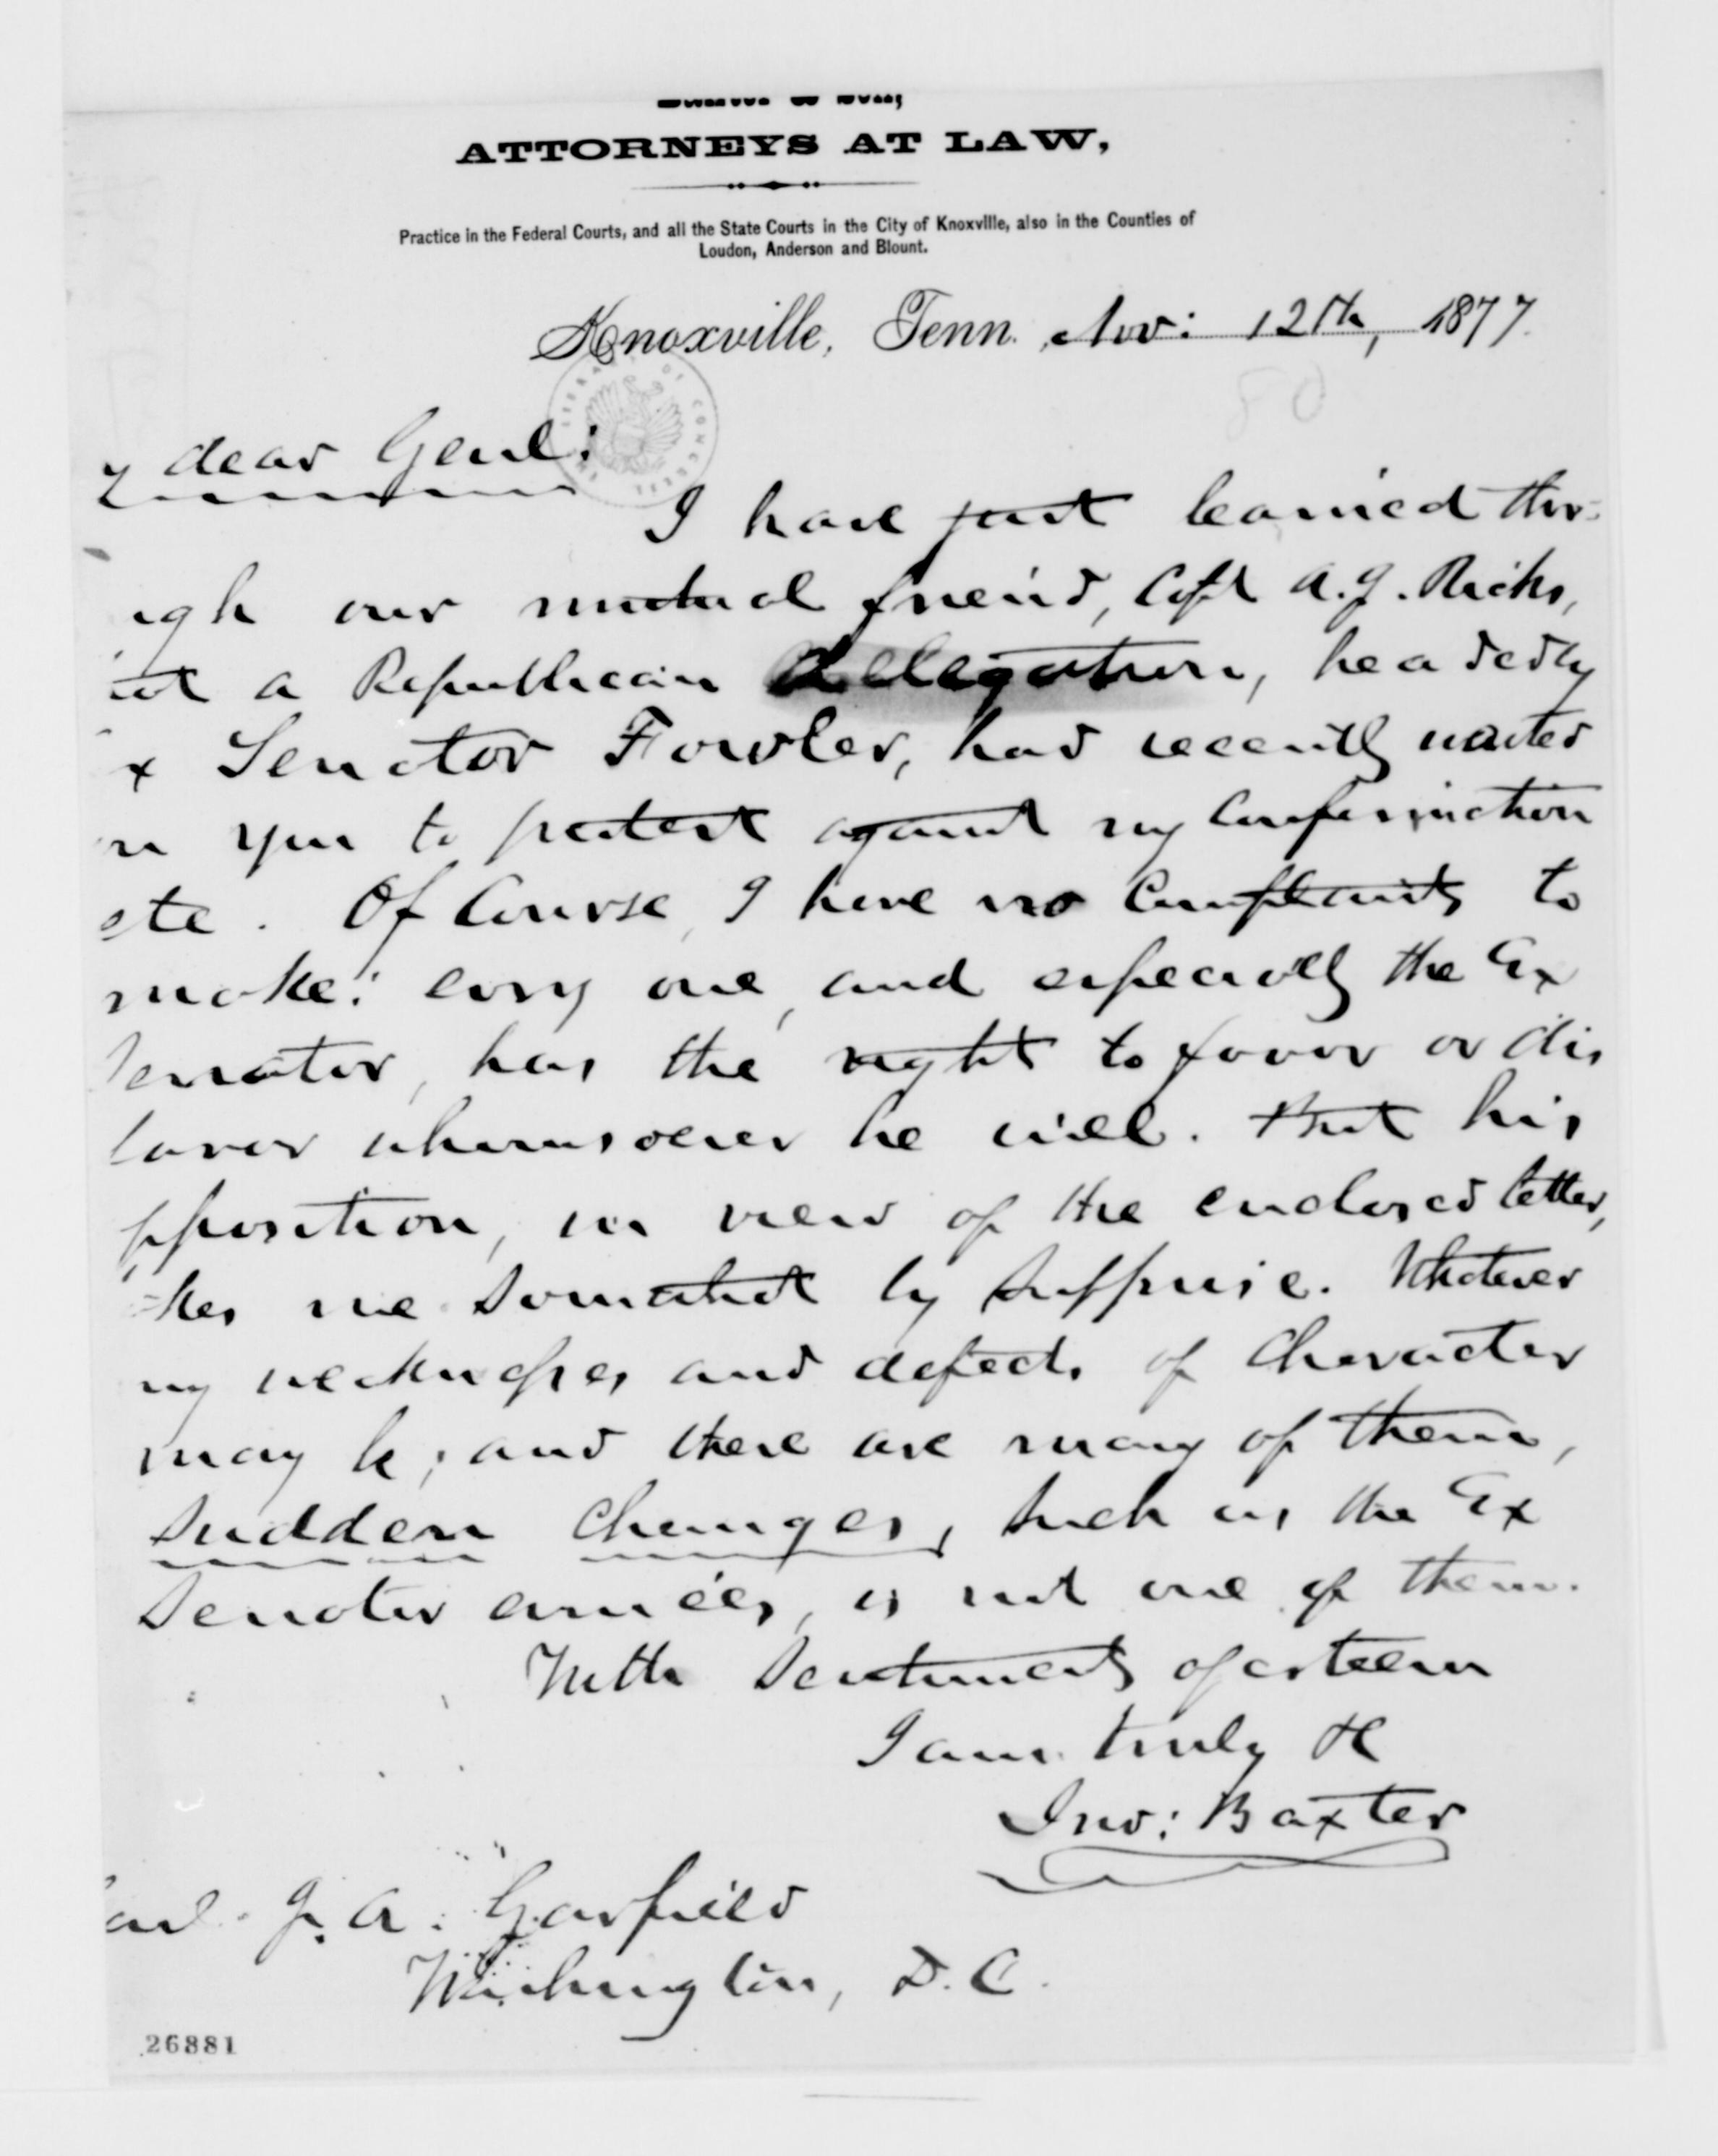 ATTORNEYS AT LAW,
Practice in the Federal Courts, and all the State Courts in the City of Knoxville, also in the Counties of
Loudon, Anderson and Blount.
Knoxville, Tenn. Nov: 12th, 1877.
y dear Genl:
I have just learned thro-
ugh our mutual friend, Capt A. J. Ricks,
at a Republican delegation, headed by
x Senator Fowler, had recently waited
n you to protest against my confirmation
etc. Of Course, I have no Complaints to
make: every one, and especially the Ex
Senator, has the right to favor or dis
favor whomsoever he will. But his
pposition, in view of the enclosed letter,
kes me somewhat by surprise. Whatever
my weaknesses and defects of Character
may be, and there are many of them,
sudden changes, such as the Ex
Senator evinces, is not one of them.
With Sentiments of esteem
I am truly &c
Jno: Baxter
J. A. Garfield
Washington, D. C.
26881